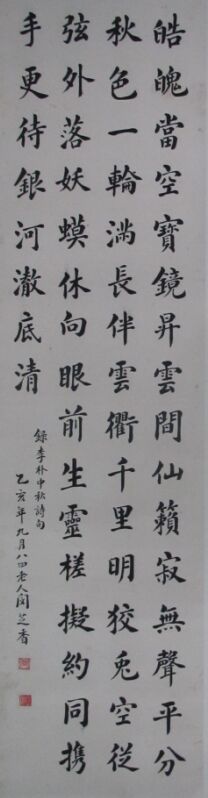 皓魄當空寶鏡昇雲間仙籟寂無聲平分
秋色一輪滿長伴雲衢千里明狡兔空從
弦外落妖蟆休向眼前生靈槎擬約同携
手更待銀河澈底清
錄李朴中秋詩句
乙亥年九月八四老人閔芝香